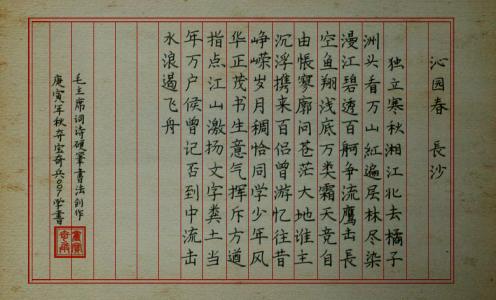 沁园春 長沙
独立寒秋湘江北去橘子
洲头看万山紅遍层林尽染
漫江碧透百舸争流鹰击長
空鱼翔浅底万类霜天竞自
由悵寥廓问苍茫大地谁主
沉浮携来百侣曾游忆往昔
峥嵘岁月稠恰同学少年风
华正茂书生意气挥斥方遒
指点江山激扬文字粪土当
年万户侯曾记否到中流击
水浪遏飞舟
毛主席词诗硬筆書法創作
庚寅年秋弃宝奇兵009学書